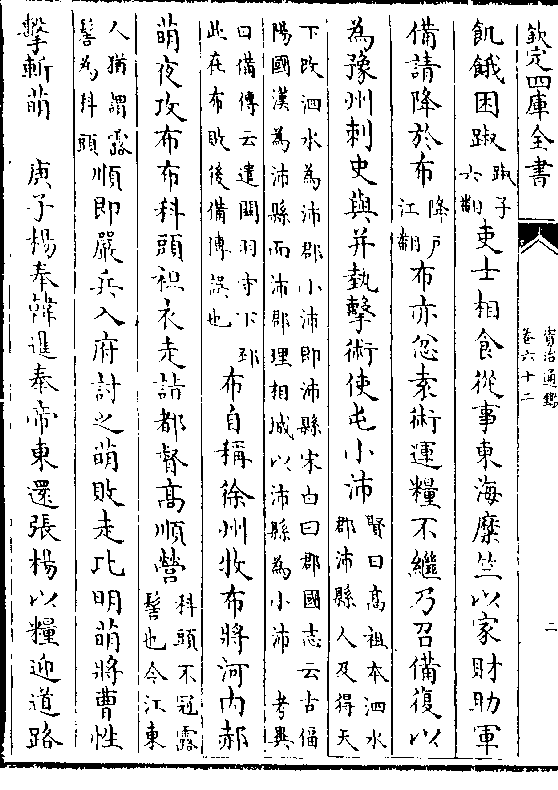 欽定四庫全書
資治通鑑
卷六十二
二
飢餓困踧踧子六翻吏士相食從事東海糜竺以家財助軍
備請降於布降戶江翻布亦忿袁術運糧不繼乃召備復以
為豫州刺史與并埶擊術使屯小沛賢曰高祖本泗水郡沛縣人及得天
下改泗水為沛郡小沛即沛縣宋白曰郡國志云古偪陽國漢為沛縣而沛郡理相城以沛縣為小沛 考異
曰備傳云遣關羽守下邳此在布敗後備傳誤也布自稱徐州牧布將河內郝
萌夜攻布布科頭袒衣走詣都督高順營科頭不冠露髻也今江東
人猶謂露髻為科頭順即嚴兵入府討之萌敗走比明萌將曹性
擊斬萌 庚子楊奉韓暹奉帝東還張楊以糧迎道路